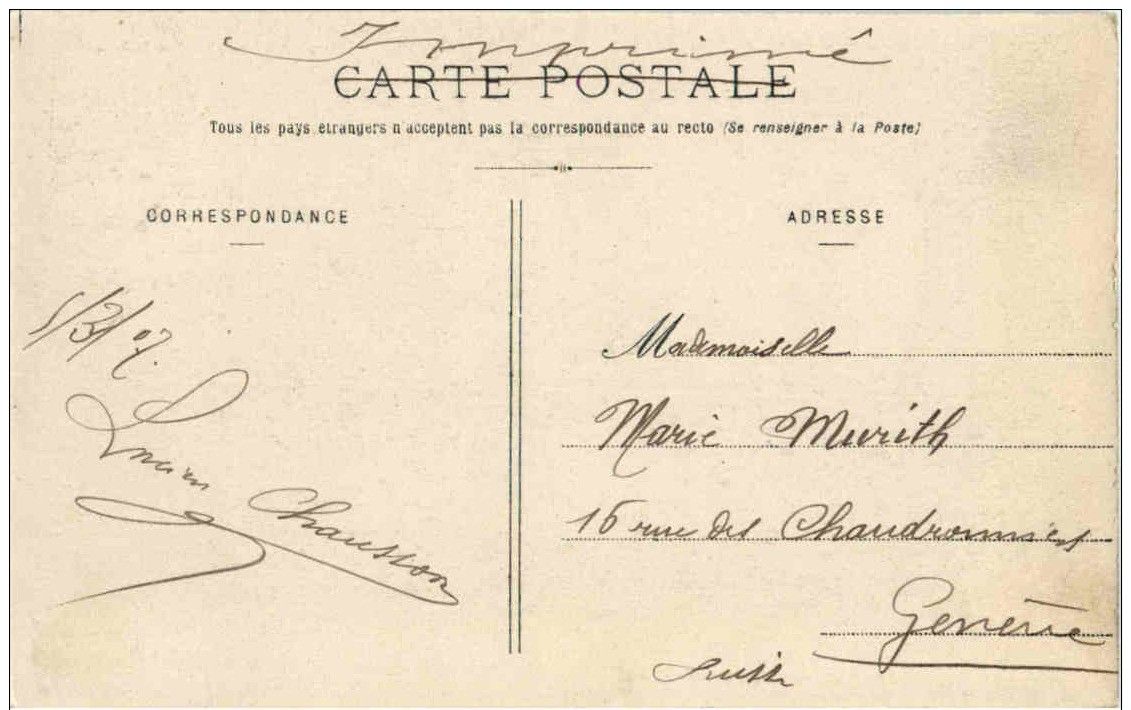 Imprimé
CARTE POSTALE
Tous les pays étrangers n'acceptent pas la correspondance au recto (Se renseigner à la Poste)
CORRESPONDANCE
5/3/07.
Lucien Chausson
ADRESSE
Mademoiselle
Marie Murith
16 rue des Chaudronniers
Genève
Suisse